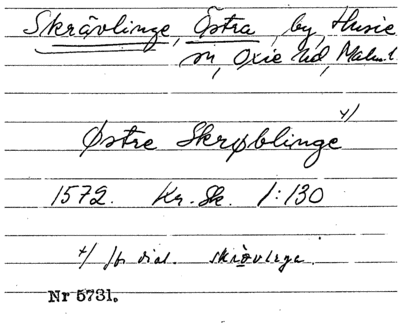 Skrävlinge, Östra, by, Husie
sn, Oxie hd, Malm. l.
Østre Skrøblinge +)
1572. Kr. Sk. 1:130
+) jfr dial.
Nr 5731.